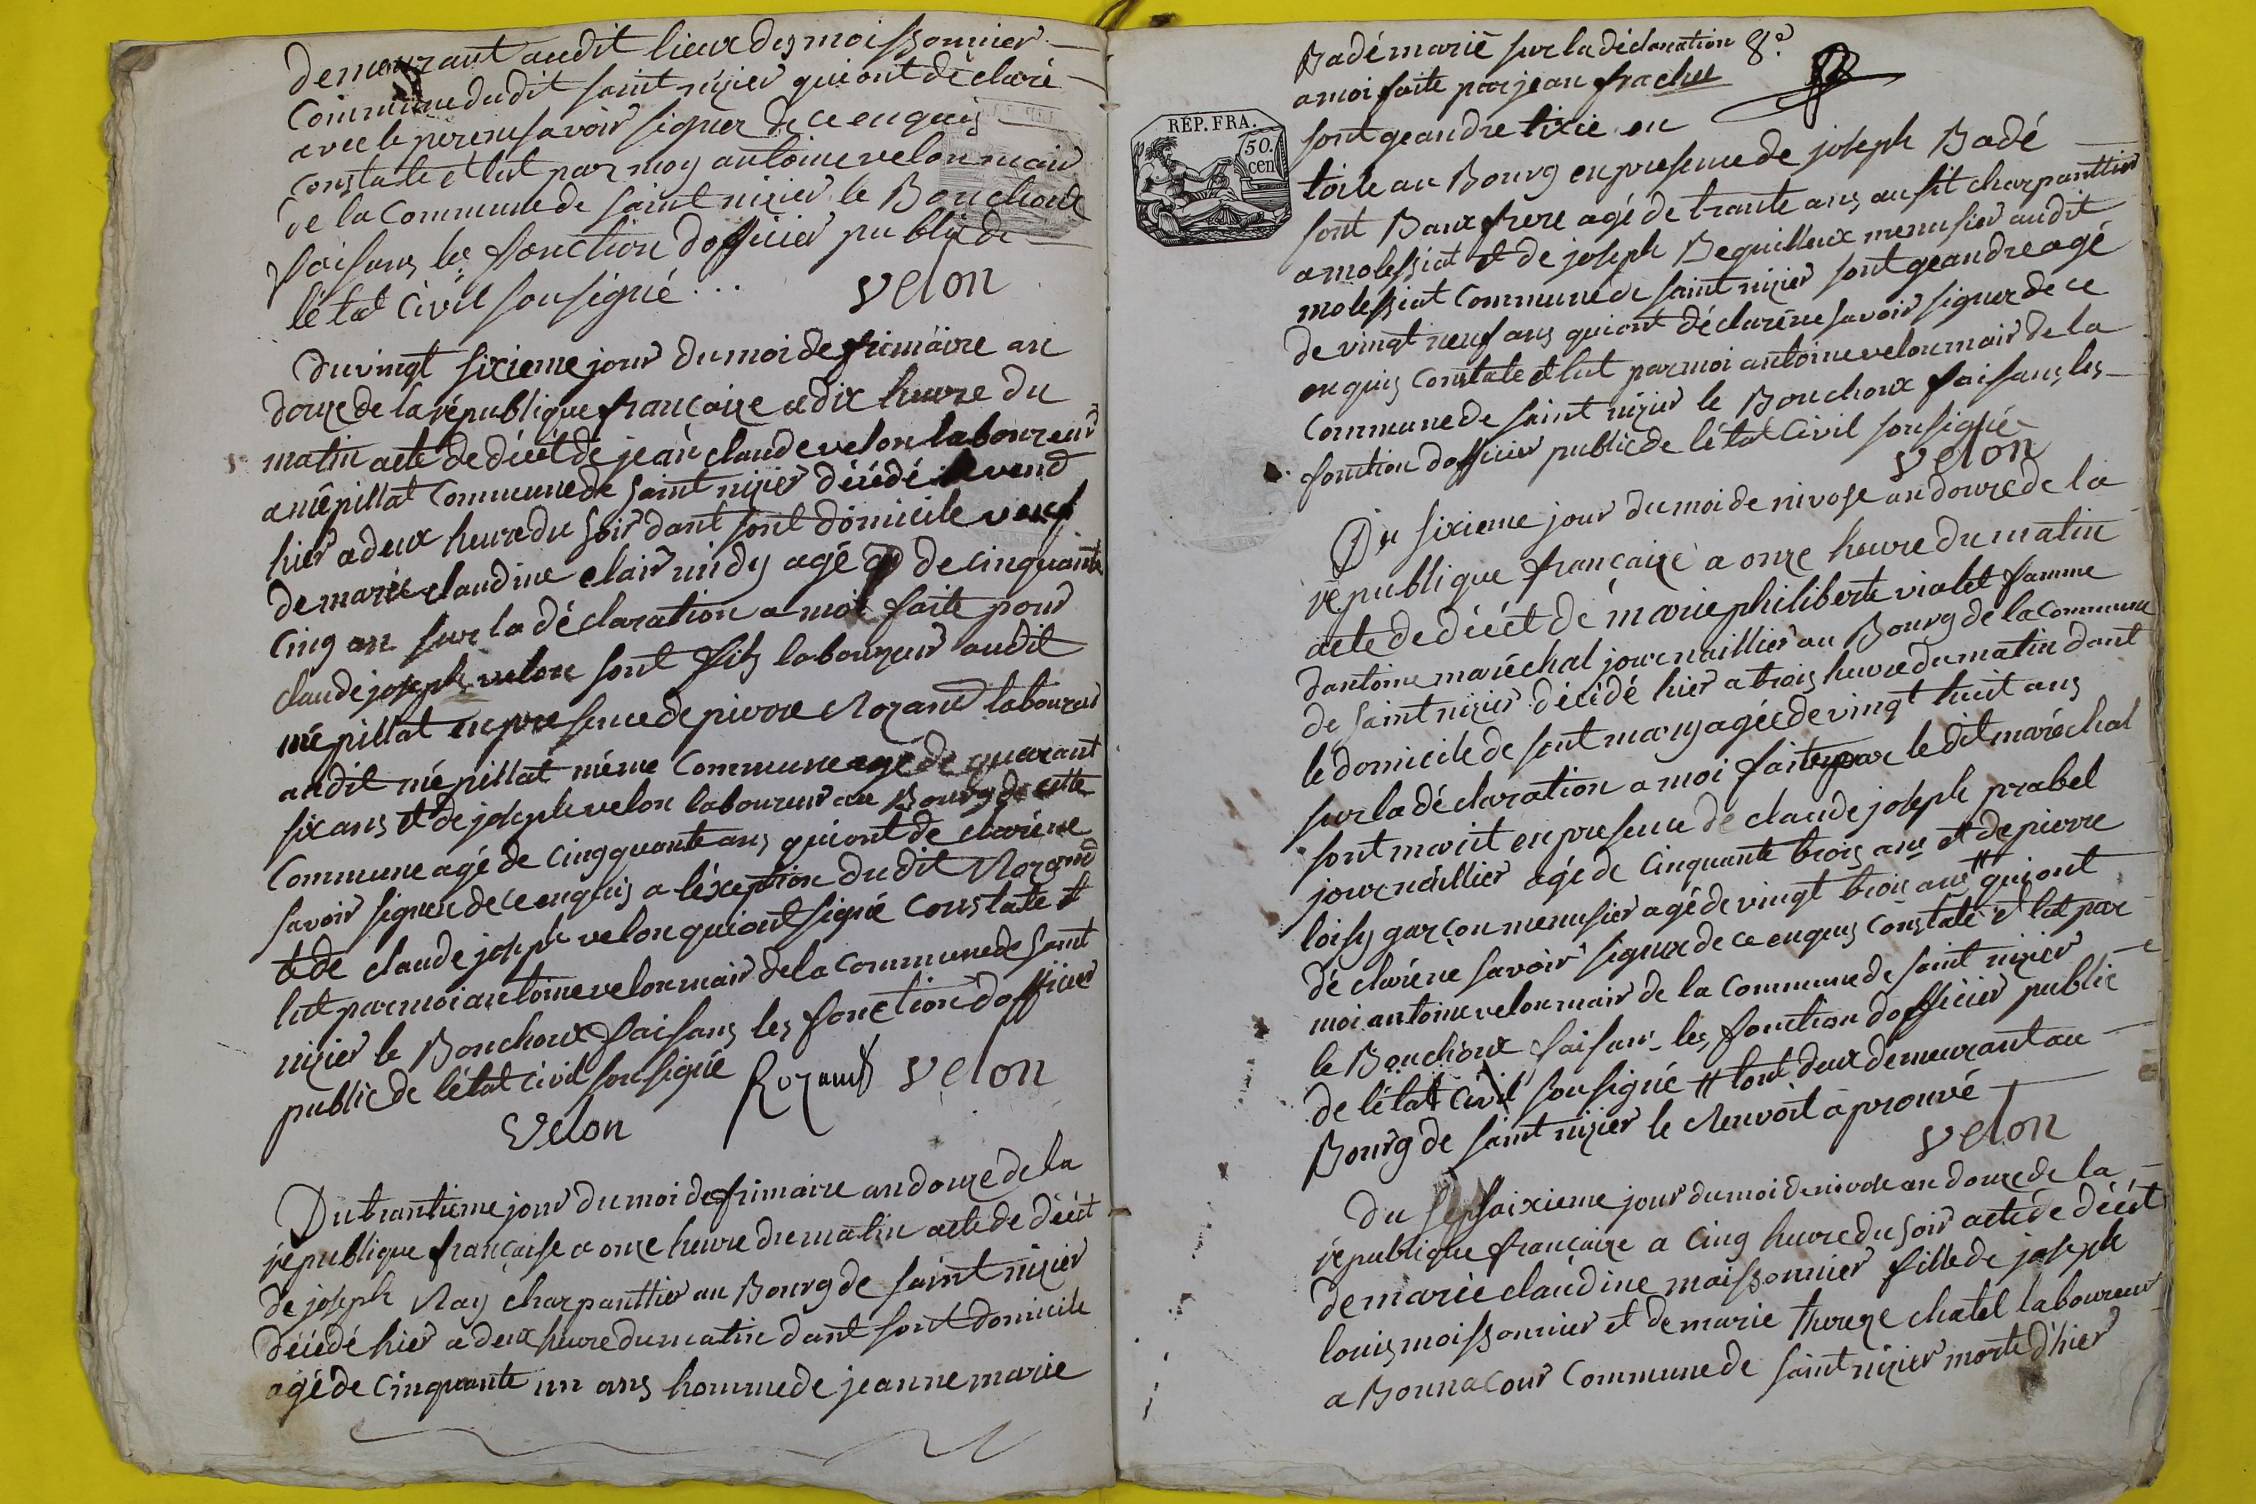 demeurant audit lieux des moissonnier
Commune dudit saint nizier qui ont déclaré
avec le pere ne savoir signer de ce enquis
constaté et lut par moy antoine velon mair
de la Commune de saint nizier le Bouchoux
faisans les fonction dofficier public de
létat Civil sousigné ... velon
Du vingt sixieme jour du moi de frimaire an
douze de la république françaize a dix heure du
matin acte de décét de jean claude velon laboureur
a mépillat Commune de saint nizier décédé
hier a deux heure du soir dant sont domicile veuf
de marie claudine clair nindy agé de cinquante
cinq an sur la déclaration a moi faite pour
claude joseph velon sont fils laboureur audit
mépillat en presence de pierre Rozand laboureur
audit mépillat méme Commune agé de quarant
six ans et de joseph velon laboureur au Bourg de cette
Commune agé de cinqquante ans qui ont declaréne
savoir signer de ce enquis a léxeption dudit Rozand
et de claude joseph velon qui ont signié constaté et
lut par moi antoine velon mair de la Commune de saint
nizier le Bouchoux faisans les fonction dofficier
public de létat civil sousigné Rozand velon
velon
Du trantieme jour du moi de frimaire an douze de la
république française a onze heure du matin acte de décét
de joseph Ray charpanttier au Bourg de saint nizier
décédé hier a deux heure du matin dant sont domicile
agé de cinquante un ans homme de jeanne marie
Badé marié sur la déclaration 8e
a moi faite par jean frachet
sont geandre tixie en
RÉP. FRA.
50.
cen
toile au Bourg en presence de joseph Badé
sont Baux frere agé de trante ans ausit charpanttier
a molessiat et de joseph Bequilleux menusier audit
molessiat Commune de saint nizier sont geandre agé
de vingt neuf ans qui ont déclaréne savoir signer de ce
enquis Constaté et lut par moi antoine velon mair de la
Commune de saint nizier le Bouchoux faisans les
fonction dofficier public de létat Civil sousigné
velon
Du sixieme jour du moi de nivose an douze de la
république françaize a onze heure du matin
acte de décét de marie philiberte violet famme
dantoine maréchal journaillier au Bourg de la commune
de saint nizier décédé hier a trois heure du matin dant
le domicile de sont mary agée de vingt huit ans
sur la déclaration a moi faite par le dit maréchal
sont marit en presence de claude joseph prabel
journaillier agé de cinquante trois ans et de pierre
loisy garçon menusier agé de vingt trois ans # qui ont
déclaréne savoir signer de ce enquis constaté et lut par
moi antoine velon mair de la Commune de saint nizier
le Bouchoux faisans les fonction dofficier public
de létat Civil sousigné # tout deux demeurant au
Bourg de saint nizier le Renvoit aprouvé
velon
Du saixieme jour du moi de nivose an douze de la
république françaize a cinq heure du soir acte de décét
de marie claudine moissonnier fille de joseph
louis moissonnier et de marie thereze chatel laboureur
a Bonnacour Commune de saint nizier morte d'hier